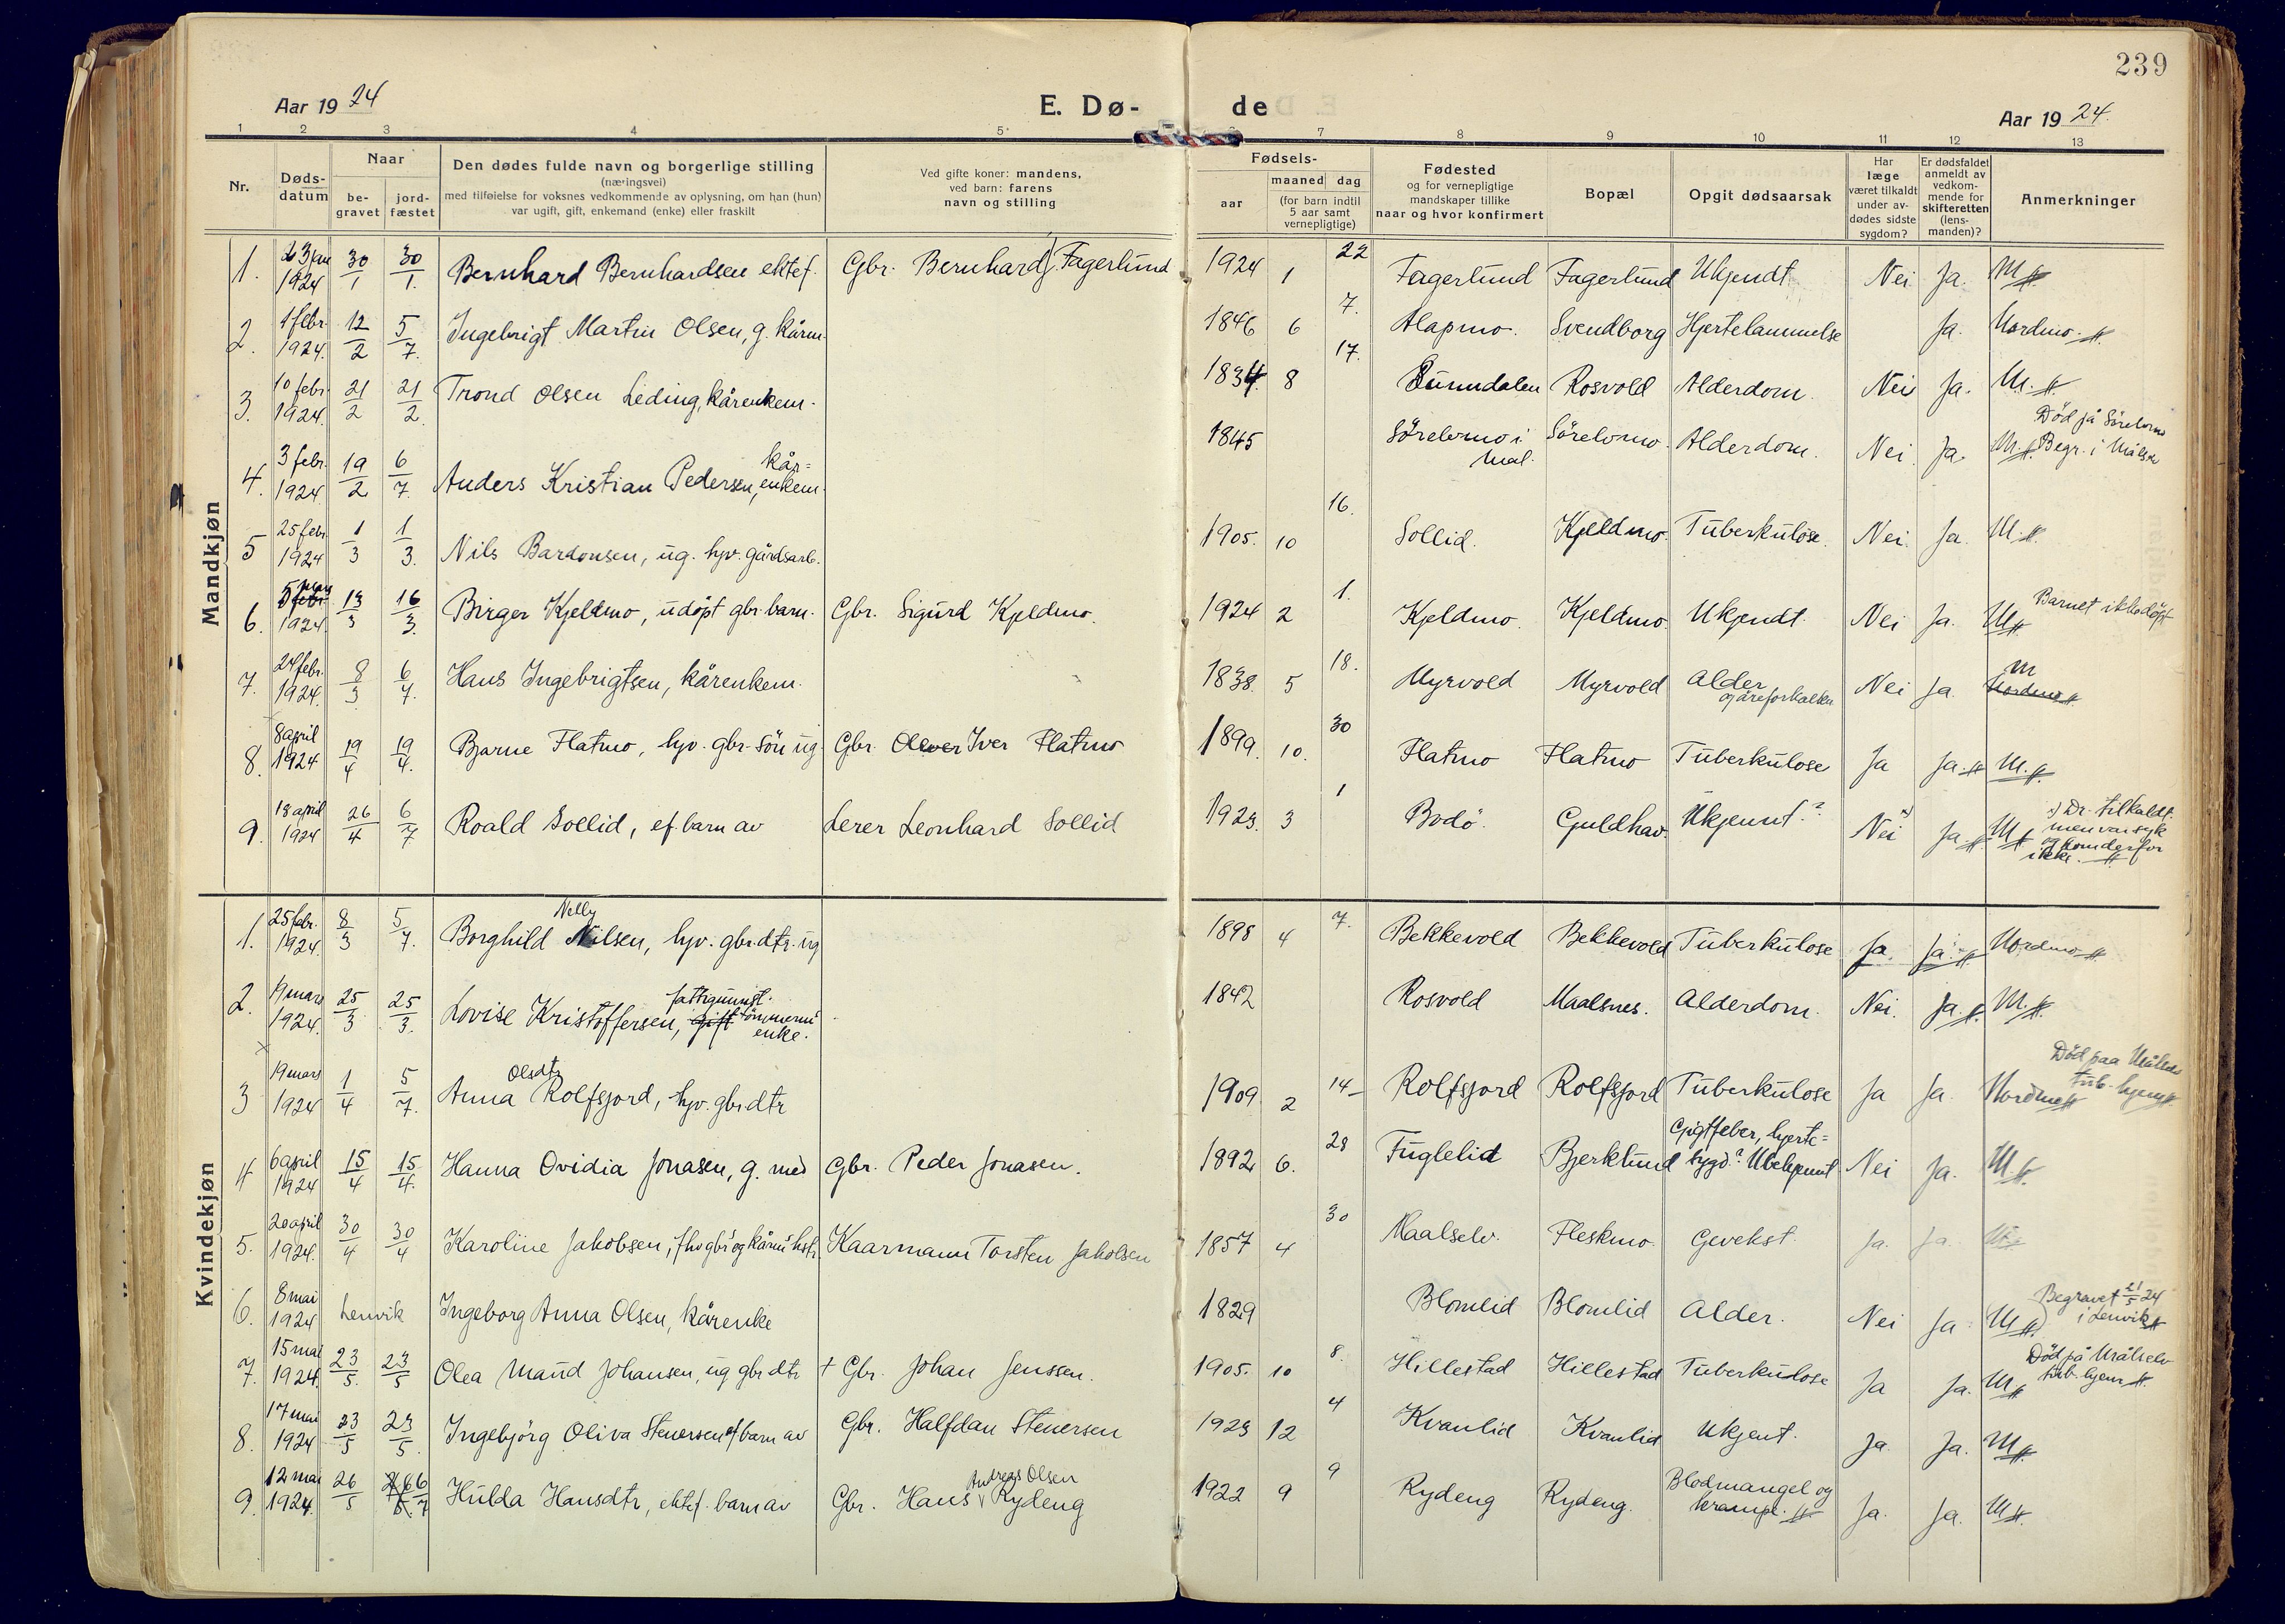 239
Aar 19 24
E. Dø-
de
Aar 19 24.
1 2 3 4 5 6 7 8 9 10 11 12 13
Nr.
Døds-
datum
Naar
be-
gravet
jord-
fæstet
Den dødes fulde navn og borgerlige stilling
(næringsvei)
med tilføielse for voksnes vedkommende av oplysning, om han (hun)
var ugift, gift, enkemand (enke) eller fraskilt
Ved gifte koner: mandens,
ved barn: farens
navn og stilling
Fødsels-
aar
maaned dag
(for barn indtil
5 aar samt
vernepligtige)
Fødested
og for vernepligtige
mandskaper tillike
naar og hvor konfirmert
Bopæl
Opgit dødsaarsak
Har
læge
været tilkaldt
under av-
dødes sidste
sygdom?
Er dødsfaldet
anmeldt av
vedkom-
mende for
skifteretten
(lens-
manden)?
Anmerkninger
Mandkjøn
1. 23 jan 1924 30/1 30/1. Bernhard Bernhardsen ektef. Gbr. Bernhard J. Fagerlund 1924 1 22 Fagerlund Fagerlund Ukjendt Nei Ja. M
2. 1 febr. 1924. 12/2 5/7. Ingebrigt Martin Olsen, g. kårm. 1846 6 7. Alapmo. Svendborg Hjertelammelse Ja. Nordmo.
3. 10 febr. 1924. 21/2 21/2. Trond Olsen Leding, kårenkem. 1834. 8 17. Rosvold Alderdom. Nei Ja. M.
4. 3 febr. 1924 19/2 6/7. Anders Kristian Pedersen, kår=
enkem. 1845 Sørelvmo i
Mål. Sørelvmo. Alderdom. Nei. Ja. M. Død på Sørelvmo
Begr. i Målselv
5 25 febr 1924 1/3 1/3. Nils Bardonsen, ug. hjv. gårdsarb. 1905. 10 16. Sollid. Kjeldmo. Tuberkulose. Nei. Ja. M.
6. 5 mars 1924. 13/3 16/3. Birger Kjeldmo, udøpt gbr. barn. Gbr. Sigurd Kjeldmo. 1924 2 1. Kjeldmo. Kjeldmo. Ukjendt. Nei Ja. M Barnet ikke døpt
7. 24 febr. 1924. 8/3 6/7. Hans Ingebrigtsen, kårenkem. 1838. 5 18. Myrvold Myrvold Alder
og åreforkalkn Nei Ja. M
Nordmo
8. 8 april 1924 19/4 19/4. Bjarne Flatmo, hjv. gbr. søn ug. Gbr. Oliver Iver Flatmo 1899. 10. 30 Flatmo Flatmo Tuberkulose Ja Ja. M.
9. 18 april 1924 26/4 6/7 Roald Sollid, ef. barn av Lerer Leonhard Sollid 1923. 3 1 Bodø. Guldhav. Ukjennt.? Nei Ja. M Dr. tilkaldt
men var syk
og kom derfor
ikke.
Kvindekjøn
1. 25 febr. 1924. 8/3 5/7. Borghild Nelly Nilsen, hjv. gbr. dtr. ug 1898 4 7. Bekkevold Bekkevold Tuberkulose Ja. Ja. Nordmo
2. 19 mars 1924. 25/3 25/3. Lovise Kristoffersen, gift enke. 1842 Rosvold Maalsnes. Alderdom. Nei. Ja. M.
3 19 mars 1924 1/4 5/7. Anna Olsdtr Rolfsjord, hjv. gbr dtr 1909 2 14 Rolfsjord Rolfsjord Tuberkulose Ja Ja. Nordmo Død paa Målselv
tub. hjem.
4 6 april 1924 15/4 15/4. Hanna Ovidia Jonasen, g. med Gbr. Peder Jonasen. 1892 6. 28 Fuglelid Bjerklund Gigtfeber, hjerte=
sygd? Ubekjennt Nei Ja. M.
5. 20 april 1924. 30/4 30/4 Karoline Jakobsen, fhv gbr og kårm. hstr. Kaarmann Torsten Jakobsen 1857 4 30 Maalselv. Fleskmo. Gevekst. Ja. Ja. M
6. 8 mai 1924 Lenvik Ingeborg Anna Olsen, kårenke 1829 Blomlid Blomlid Alder. Nei Ja M Begravet 21/5 24
i Lenvik
7. 15 mai 1924. 23/5. 23/5 Olea Maud Johansen, ug gbr dtr + Gbr. Johan Jenssen. 1905. 10 8. Hillestad Hillestad Tuberkulose Ja Ja. M Død på Målselv
tub. hjem
8. 17 mai 1924 23/5 23/5. Ingebjørg Oliva Stenersen ef barn av Gbr. Halfdan Stenersen 1923 12 4 Kvanlid Kvanlid Ukjent. Ja. Ja. M
9. 12 mai 1924. 26/5 6/7 Hulda Hansdtr, ektef. barn av Gbr. Hans Andreas Olsen Rydeng 1922 9 9 Rydeng Rydeng. Blodmangel og
krampe. Ja. Ja. M